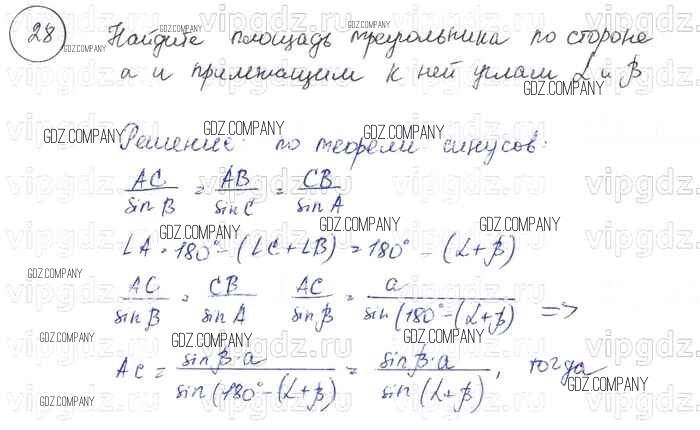 28 Найдите площадь треугольника по стороне
a и прилежащим к ней углам α и β
Решение: по теореме синусов:
AC/sin B = AB/sin C = CB/sin A
∠A = 180° - (∠C + ∠B) = 180° - (α + β)
AC/sin B = CB/sin A AC/sin β = a/sin (180° - (α + β) =>
AC = sin β · a/sin (180° - (α + β) = sin β · a/sin (α + β), тогда
GDZ.COMPANY
vipgdz.ru